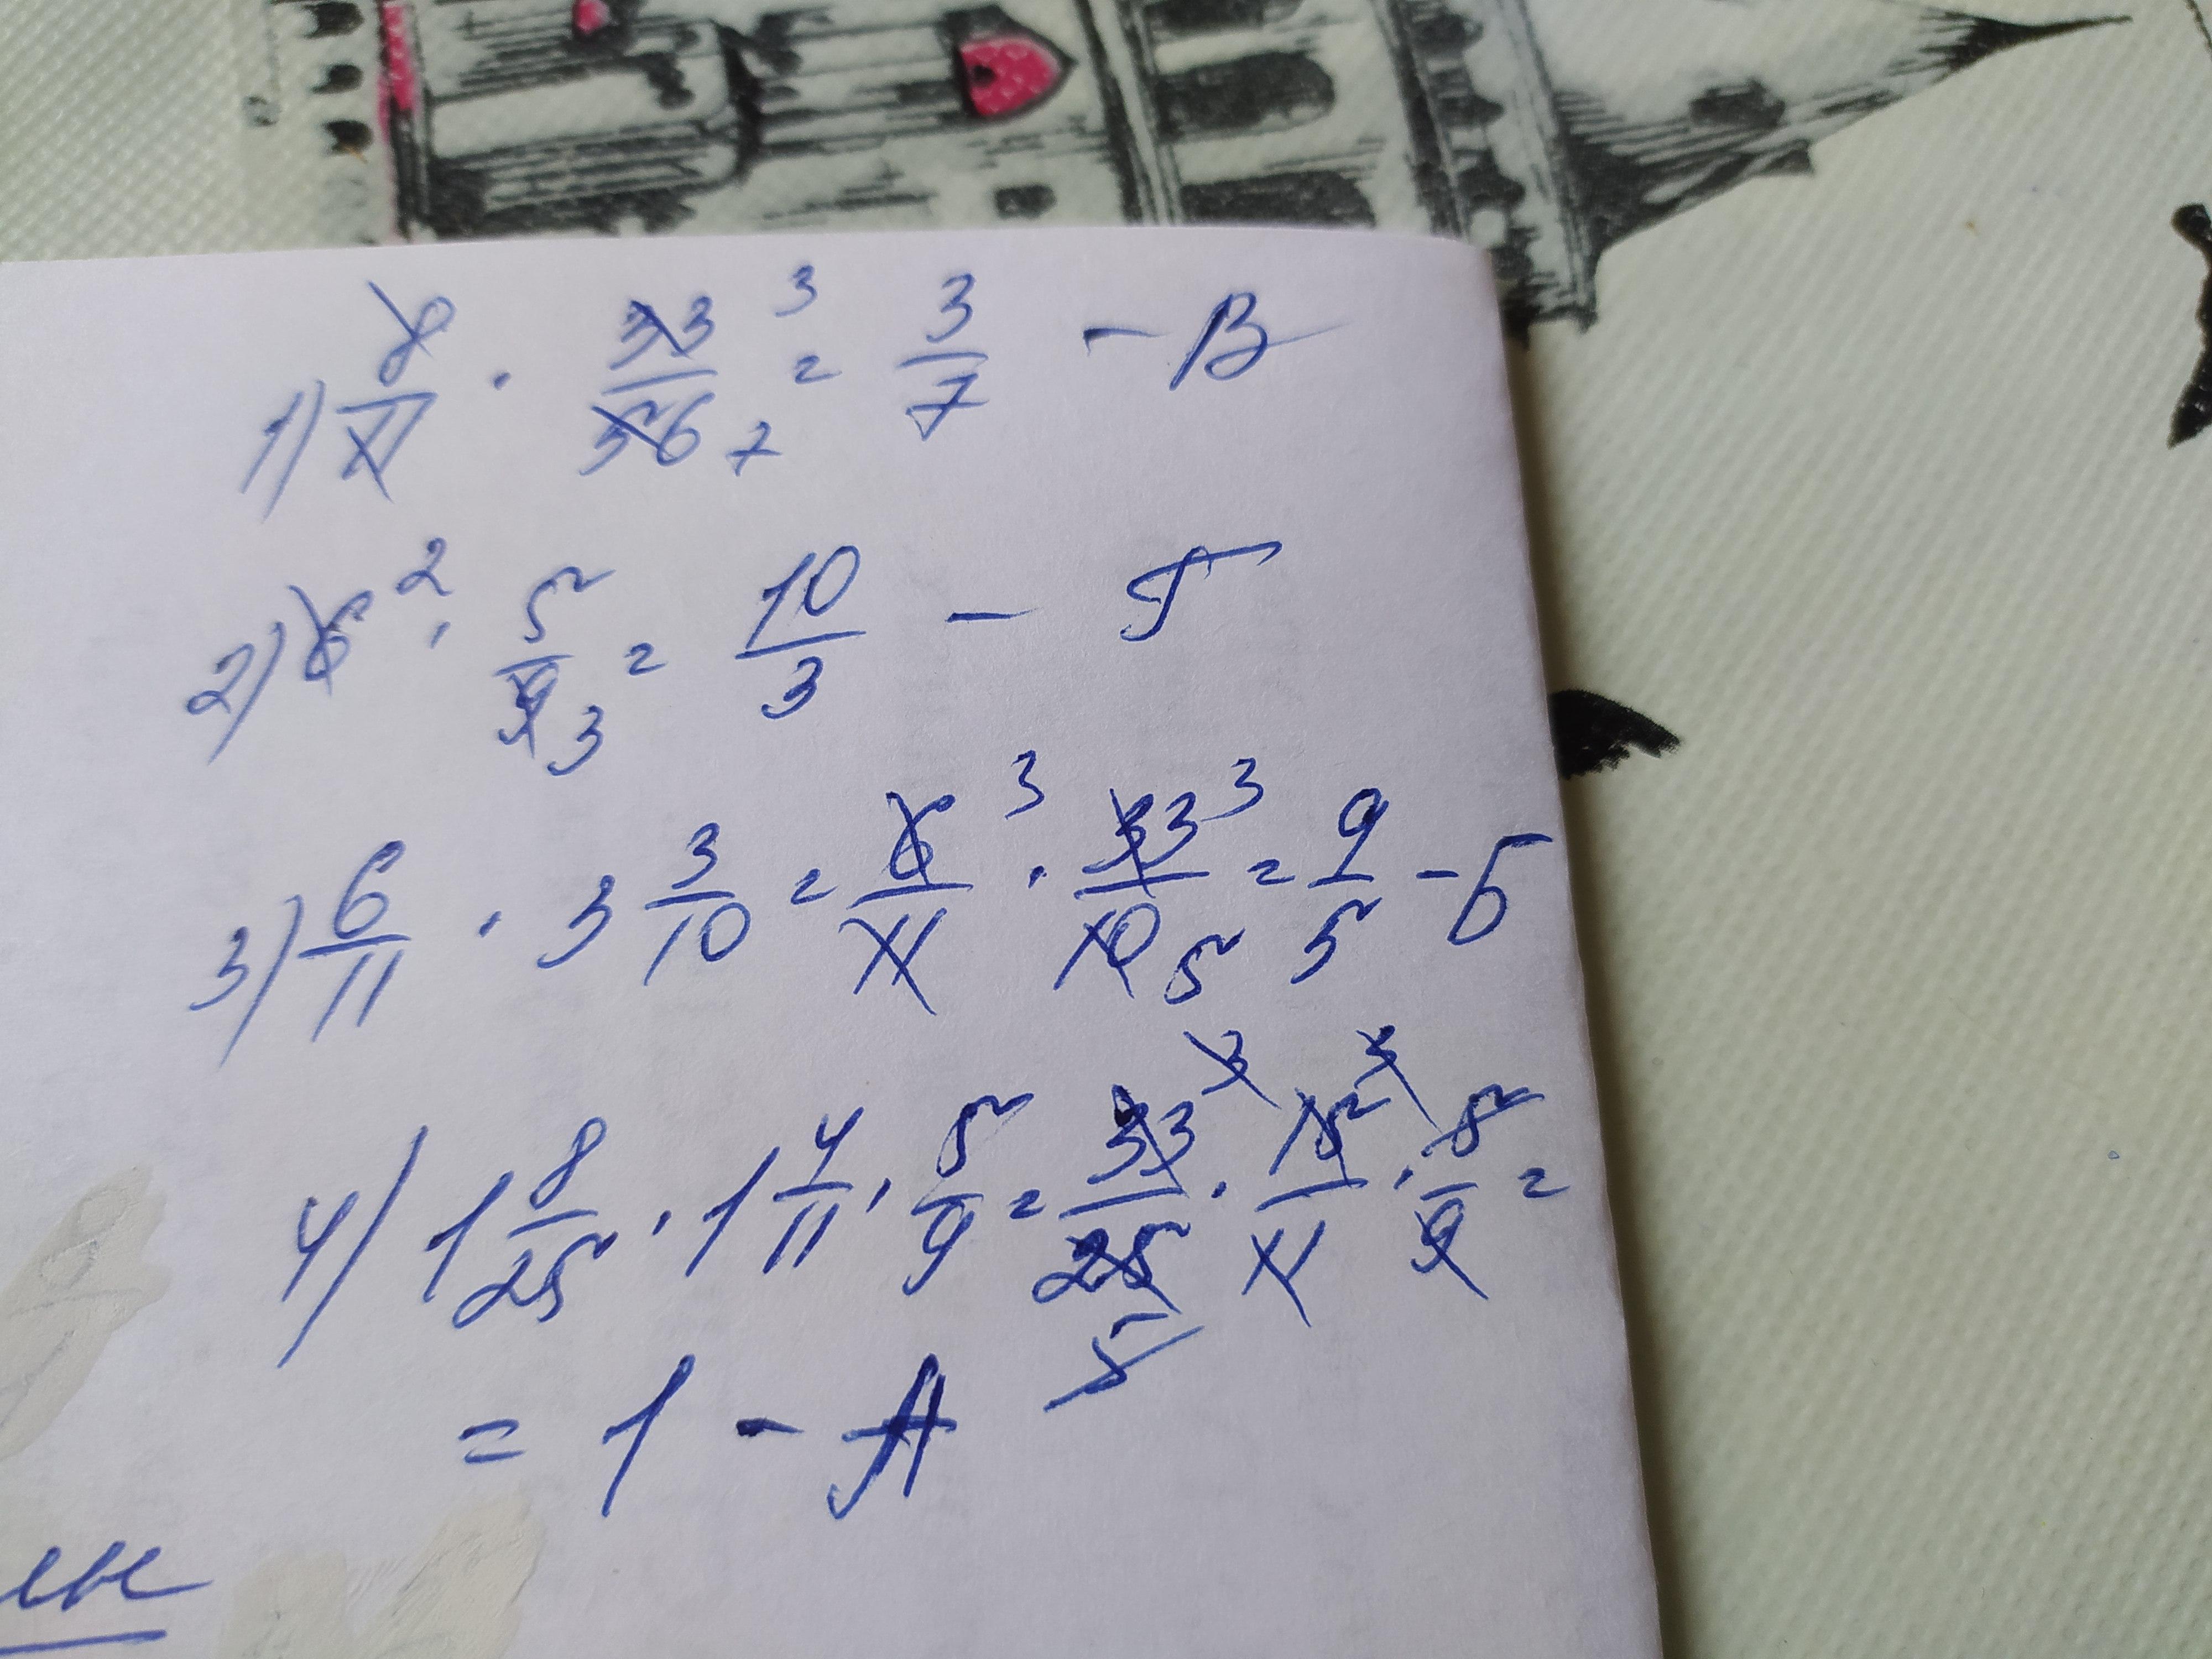 1) 8/11 · 33/56 3 7 = 3/7 - В
2) 6 2 · 5/9 3 = 10/3 - Г
3) 6/11 · 3 3/10 = 6/11 3 · 33/10 3 5 = 9/5 - Б
4) 1 8/25 · 1 4/11 · 5/9 = 33/25 3 5 · 15/11 3 · 5/9 =
= 1 - А